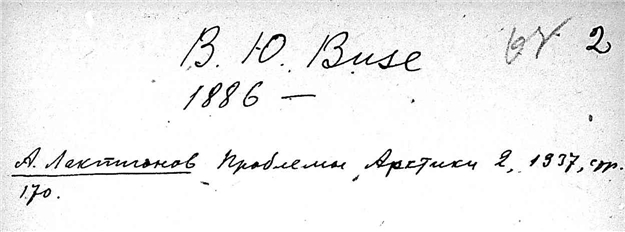 В. Ю. Визе
2
1886 —
А. Лактионов Проблемы Арктики 2, 1937, стр.
170.